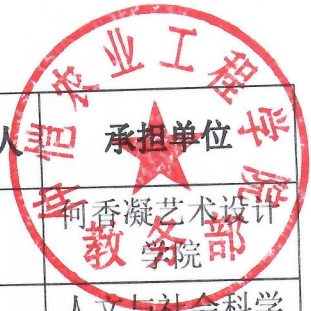 仲恺农业工程学院
人 承担单位
何香凝艺术设计
学院
教务部
人文与社会科学